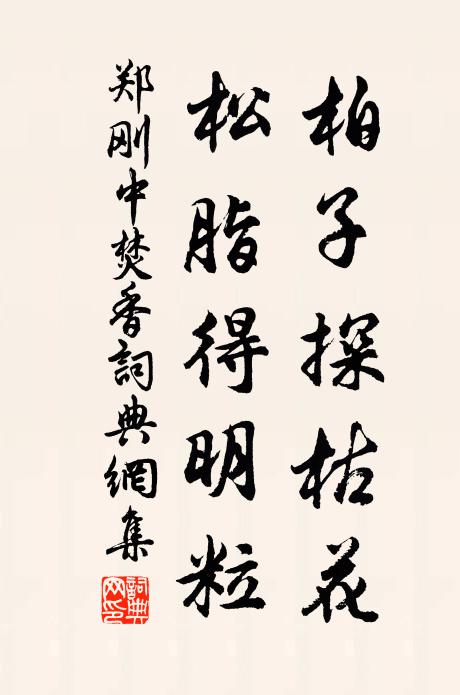 柏子探枯花
松脂得明粒
郑刚中焚香詞典網集
詞典网印